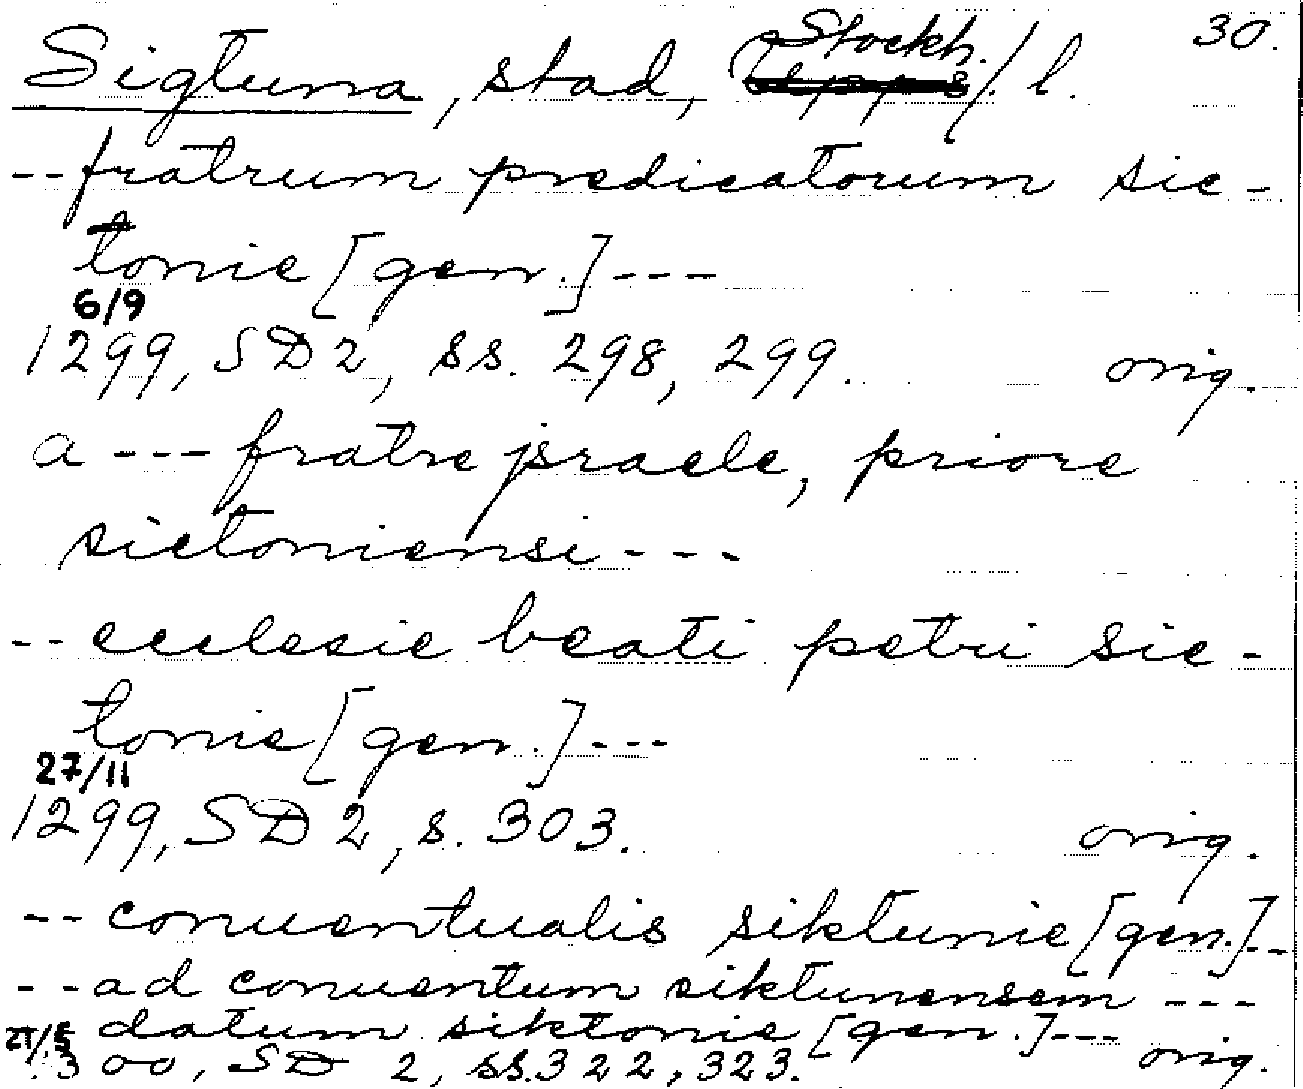 Sigtuna, stad, (Stockh./. l. 30.
-- fratrum predicatorum sic-
tonie [gen.] ---
6/9
1299, SD 2, ss. 298, 299. orig.
a --- fratre jsraele, priore
sictoniensi ---
-- ecclesie beati petri sic-
tonie [gen.] ---
27/11
1299, SD 2, s. 303. orig.
-- conuentualis siktunie [gen.] --
-- ad conuentum siktunensem ---
datum siktonie [gen.] ---
300, SD 2, ss. 322, 323. orig.